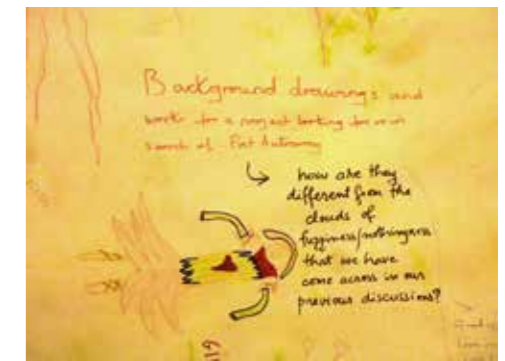 Background drawings and
works for a project looking for or in
search of Post Autonomy
how are they
different from the
clouds of
fuzziness/nothingness
that we have
come across in our
previous discussions?